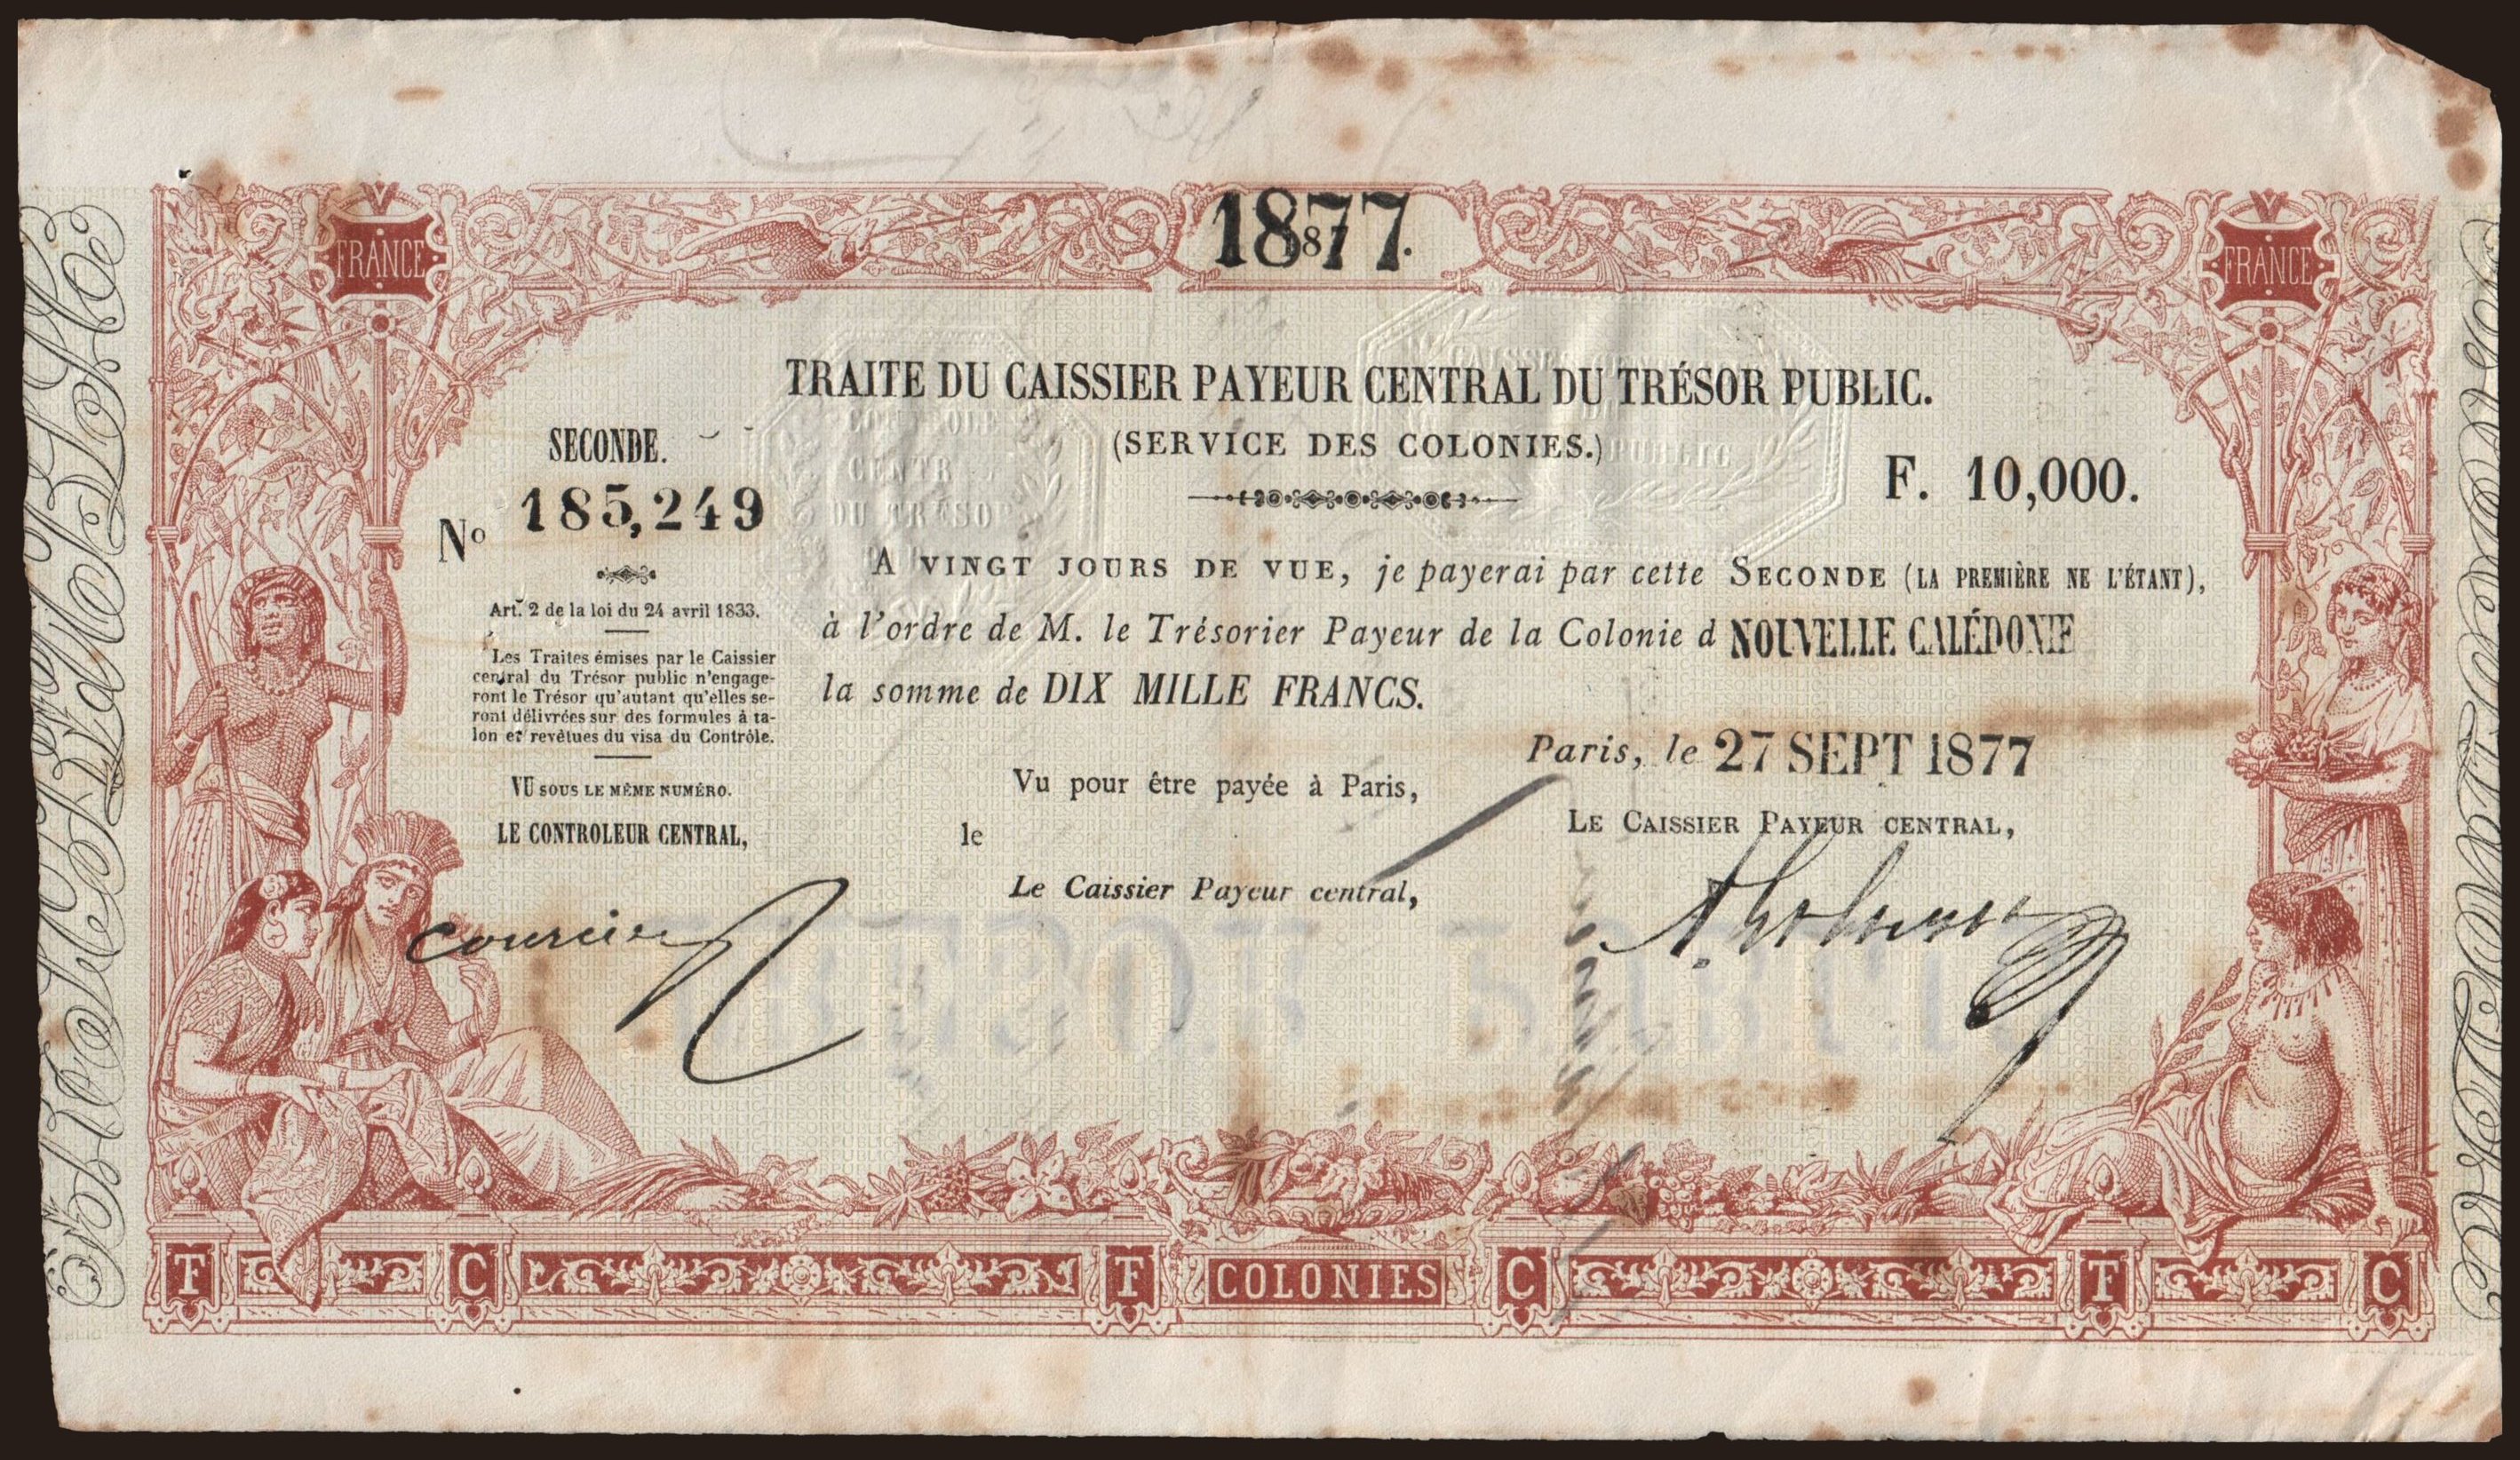 1877.
87
FRANCE
FRANCE
TRAITE DU CAISSIER PAYEUR CENTRAL DU TRÉSOR PUBLIC.
SECONDE.
(SERVICE DES COLONIES.)
F. 10,000.
No 185,249
CONTROLE
CENTR
DU TRESO
PUBLIC
A VINGT JOURS DE VUE, je payerai par cette SECONDE (LA PREMIÈRE NE L'ÉTANT),
à l'ordre de M. le Trésorier Payeur de la Colonie d NOUVELLE CALÉDONIE
la somme de DIX MILLE FRANCS.
Paris, le 27 SEPT 1877
Art. 2 de la loi du 24 avril 1833.
Les Traites émises par le Caissier
central du Trésor public n'engage-
ront le Trésor qu'autant qu'elles se-
ront délivrées sur des formules à ta-
lon et revêtues du visa du Contrôle.
VU SOUS LE MÊME NUMÉRO.
LE CONTROLEUR CENTRAL,
Vu pour être payée à Paris,
le
Le Caissier Payeur central,
LE CAISSIER PAYEUR CENTRAL,
T C T COLONIES C T C